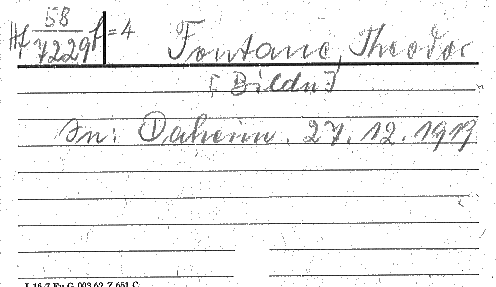 58
7229 = 4
Fontane, Theodor
[Bildn]
In: Daheim. 27. 12. 1919
L 16-7 Fu G 003 62 Z 651 C